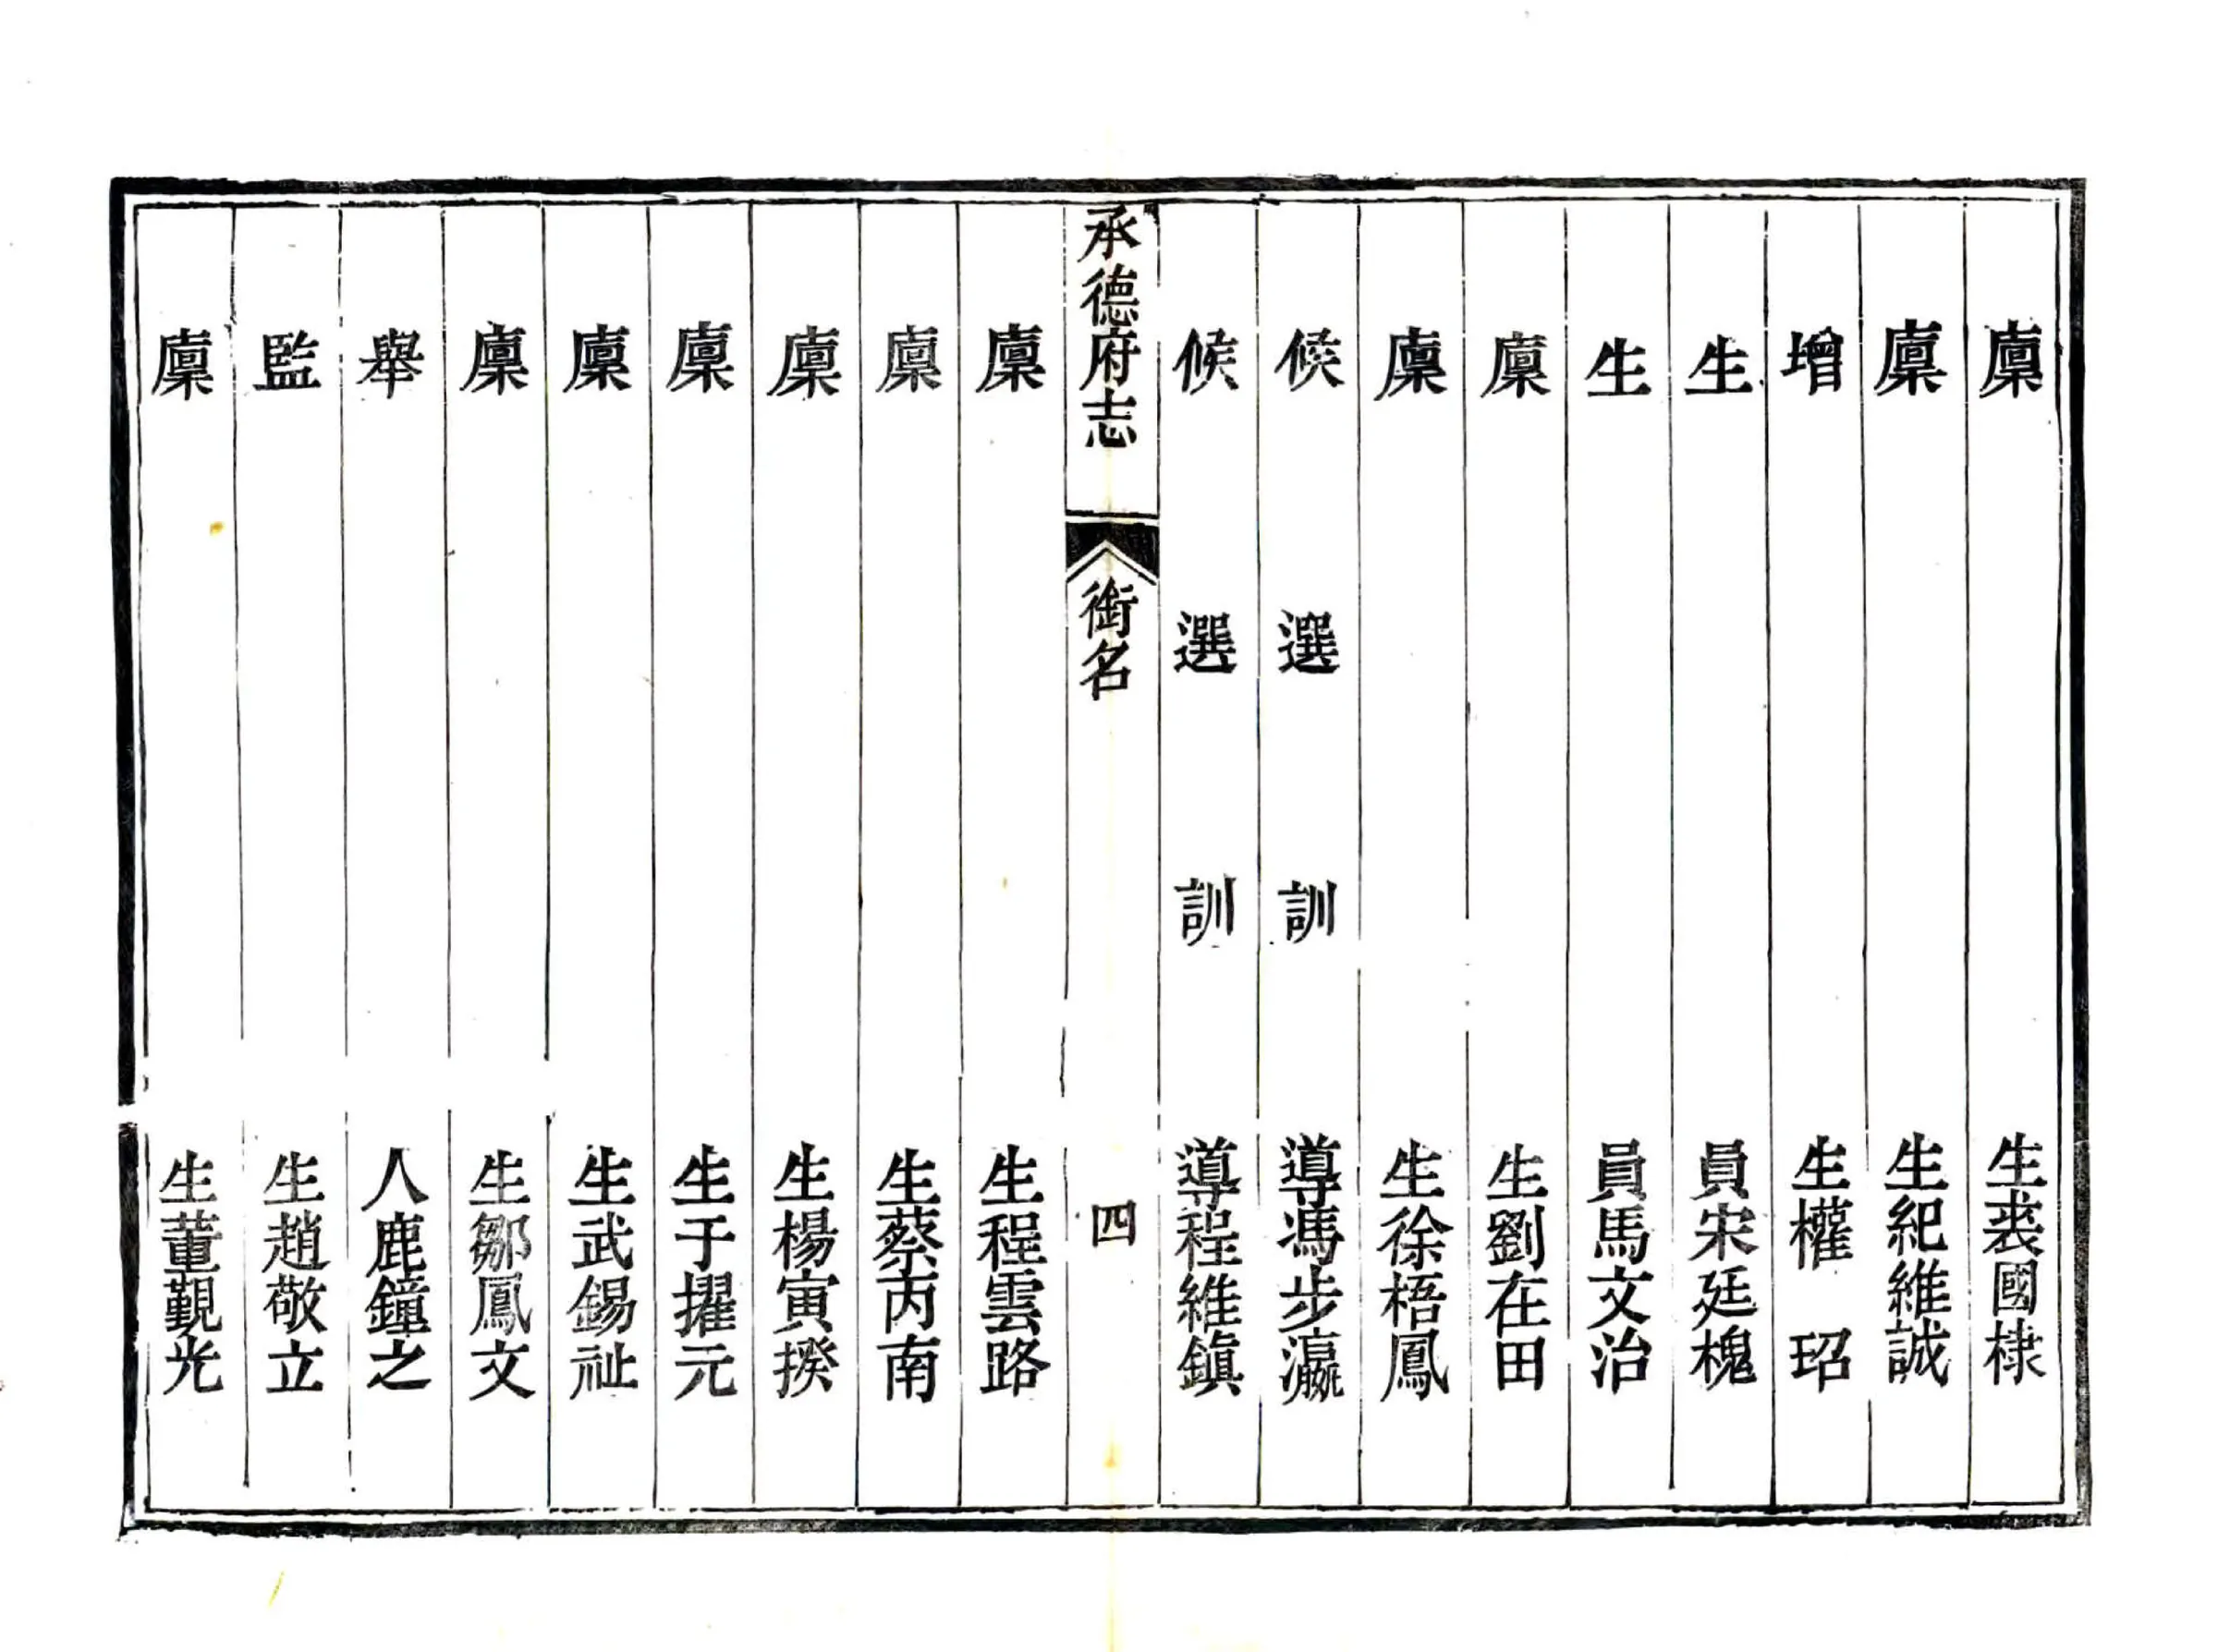 廩生裘國棣
廩生紀維誠
增生權玿
生員宋廷槐
生員馬文治
廩生劉在田
廩生徐梧鳳
候選訓導馮步瀛
候選訓導程維鎭
承德府志 銜名 四
廩生程雲路
廩生蔡丙南
廩生楊寅揆
廩生于擢元
廩生武錫祉
廩生鄒鳳文
舉人鹿鐘之
監生趙敬立
廩生董觀光